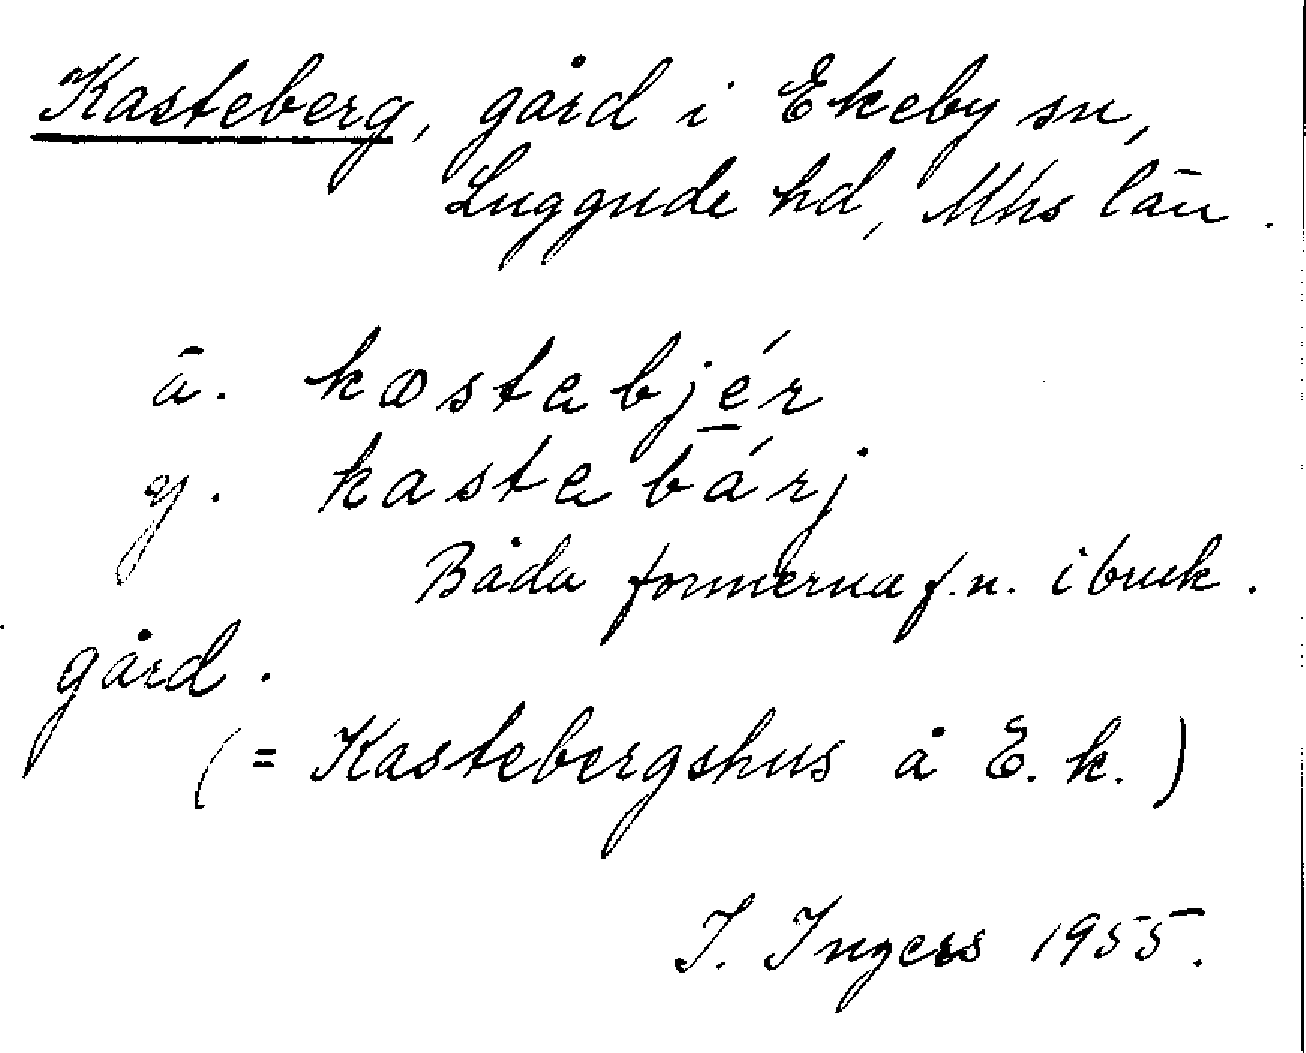 Kasteberg, gård i Ekeby sn,
Luggude hd, Mhs län.
ä. kɑstabjér
y. kastabárj
Båda formerna f.n. i bruk.
gård.
(= Kastebergshus å E. k.)
I. Ingers 1955.